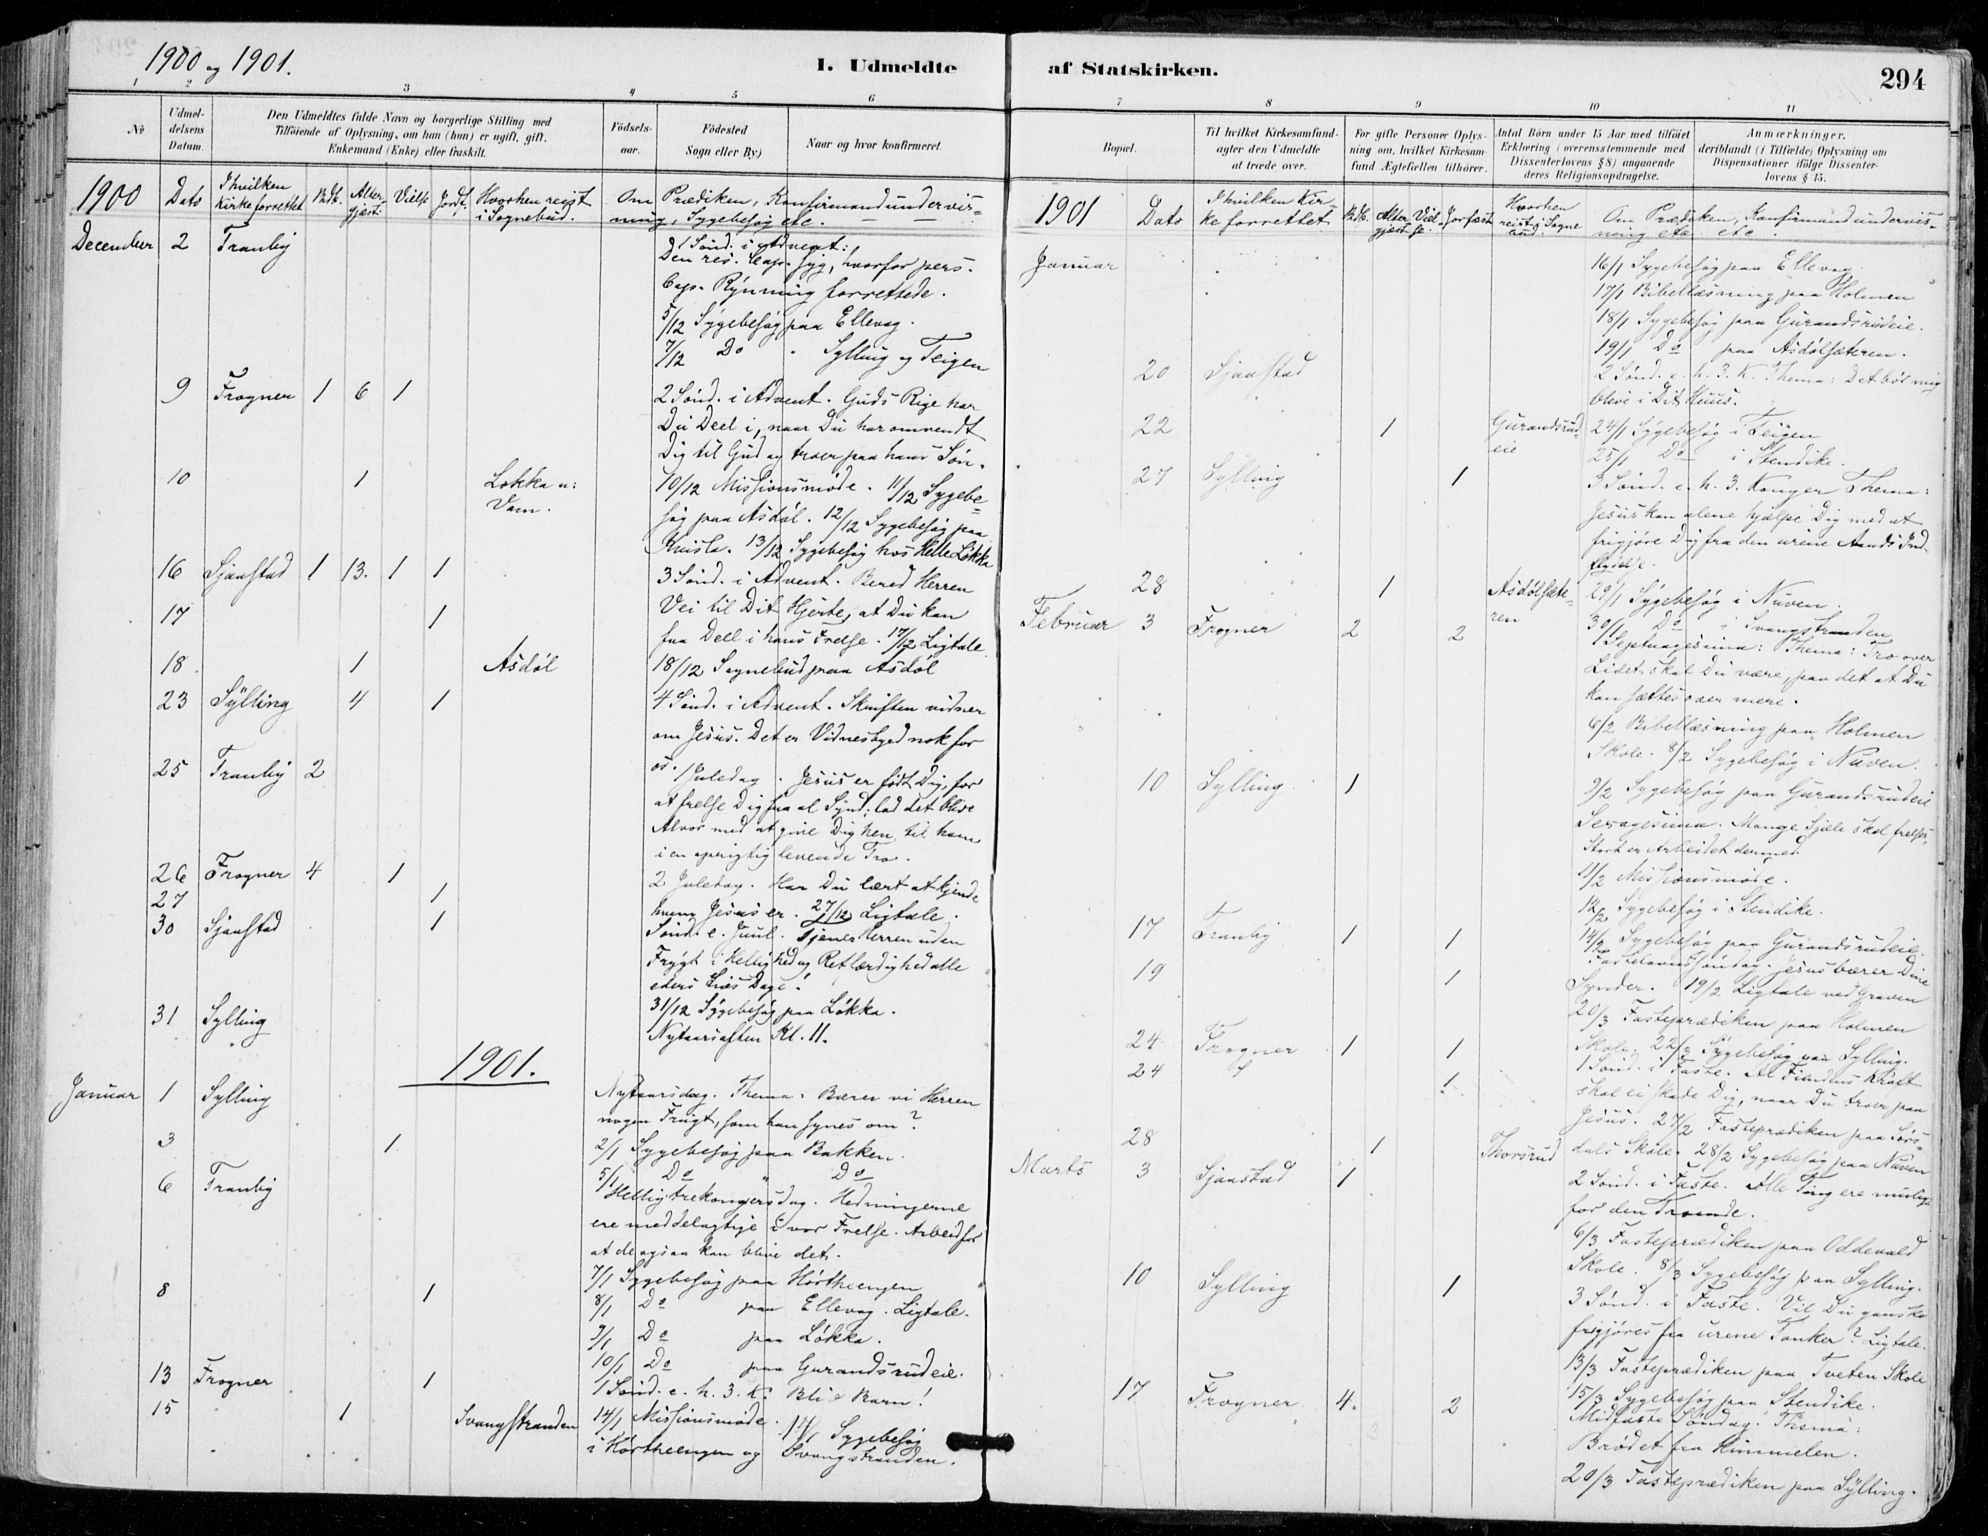 1900 og 1901.
I. Udmeldte
1 2 3 4 5 6
No
Udmel-
delsens
Datum.
Den Udmeldtes fulde Navn og borgerlige Stilling med
Tilføiende af Oplysning, om han (hun) er ugift, gift,
Enkemand (Enke) eller fraskilt.
Fødsels-
aar.
Fødested
Sogn eller By.)
Naar og hvor konfirmeret.
1900 Dato I hvilken Kirke forrettet Bådt. Altergjæst: Vielse Jordf. Hvorhen reist i Sognebud. Om Prædiken, Konfirmandundervis-
ning, Sygebesøg etc.
December 2 Tranby 1 Sønd. i Advent:
Den res. Cap. syg, hvorfor pers.
Cap. Rynning forrettede.
5/12 Sygebesøg paa Ellevog.
7/12 Do " Sylling og Teigen
9 Frogner 1 6 1 2 Sønd. i Advent. Guds Rige har
Du Deel i, naar Du har omvendt
Dig til Gud og troer paa hans Søn.
10 1 Løkka u: Vam. 10/12 Missionsmøde. 11/12 Sygebe-
søg paa Asdøl. 12/12 Sygebesøg paa
13/12 Sygebesøg hos Helle Løkka
16 Sjaastad 1 13. 1 1 3 Sønd. i Advent. Bered Herren
17 1 Vei til Dit Hjerte, at Du kan
faa Deel i hans Frelse. 17/12 Ligtale.
18. 1 Asdøl 18/12 Sognebud paa Asdøl
23 Sylling 4 1 4 Sønd. i Advent. Skriften vidner
om Jesus. Det er Vidnesbyrd nok for
os.
25 Tranby 2 1 Juledag. Jesus er født Dig, for
at frelse Dig fra al Synd; lad det blive
Alvor med at give Dig hen til ham
i en oprigtig levende Tro.
26 Frogner 4 1 2 Juledag. Har Du lært at kjende
27 1 hvem Jesus er. 27/12 Ligtale.
30 Sjaastad 1 Sønd. e. Juul. Tjener Herren uden
Frygt i Hellighed og Retfærdighed alle
eders Livs Dage!
31/12 Sygebesøg paa Løkka.
31 Sylling Nytaarsaften Kl. 11.
1901.
Januar 1 Sylling Nytaarsdag. Thema: Bærer vi Herren
nogen Frugt, som han synes om?
3 1 2/1 Sygebesøg paa Bakken.
5/1 Do " Do
6 Tranby Helligtrekongersdag. Hedningerne
ere meddelagtige i vor Frelse. Arbeid for
at de ogsaa kan blive det.
7/1 Sygebesøg paa Hørtheengen
8 1 8/1 Do paa Ellevog. Ligtale.
9/1 Do paa Løkka.
10/1 Do paa Gurandsrudeie.
13 Frogner 1 1 Sønd. e. h. 3. K. Bliv Barn!
15 1 Svangstranden 14/1 Missionsmøde. 14/1 Sygebesøg
i Hørtheengen og Svangstranden.
af Statskirken. 294
7 8 9 10 11
Bopæl.
Til hvilket Kirkesamfund
agter den Udmeldte
at træde over.
For gifte Personer Oplys-
ning om, hvilket Kirkesam-
fund Ægtefællen tilhører.
Antal Børn under 15 Aar med tilføiet
Erklæring (overensstemmende med
Dissenterlovens § 8) angaaende
deres Religionsopdragelse.
Anmærkninger,
deriblandt (i Tilfælde) Oplysning om
Dispensationer ifølge Dissenter-
lovens § 15.
1901 Dato I hvilken Kirke forrettet Bådt. Altergjæst Vielse. Jordfæst Hvorhen reist i Sognebud. Om Prædiken, Konfirmandundervis-
ning etc. etc.
Januar 16/1 Sygebesøg paa Ellevog.
17/1 Bibellæsning paa Holmen
18/1 Sygebesøg paa Gurandsrudeie.
19/1 Do paa Asdølsæteren.
20 Sjaastad 2 Sønd. e. h. 3. K. Thema: Det bør mig
blive i Dit Huus.
22 1 Gurandsrudeie 24/1 Sygebesøg i Teigen
25/1 Do i Stendike.
27 Sylling 1 3 Sønd. e. h. 3. Konger Thema:
Jesus kan alene hjælpe Dig med at
frigjøre Dig fra den urene Aands Ind-
flydelse.
28 1 Asdølsæteren 29/1 Sygebesøg i Nuven.
30/1 Do i Svangstranden
Februar 3 Frogner 2 2 Septuagesima: Thema: Tro over
Lidet skal Du være, paa det at Du
kan sættes over mere.
6/2 Bibellæsning paa Holmen
Skole. 8/2 Sygebesøg i Nuven.
10 Sylling 1 9/2 Sygebesøg paa Gurandsrudeie
Sexagesima. Mange Sjæle skal frelses,
Stort er Arbeidet dermed.
11/2 Missionsmøde.
12/2 Sygebesøg i Stendike.
17 Tranby 1 1 14/2 Sygebesøg paa Gurandsrudeie.
Fastelavns Søndag. Jesus bærer Dine
19 1 Synder. 19/2 Ligtale ved Graven
20/3 Fasteprædiken paa Holmen
24 Frogner 1 1 Skole. 22/2 Sygebesøg paa Sylling.
24 " 1 1 Sønd. i Faste. Al Fiendens Kraft
skal ei skade Dig, naar Du troer paa
Jesus. 27/2 Fasteprædiken paa Sørs-
28 1 Thorsrud dals Skole. 28/2 Sygebesøg paa Nuven
Marts 3 Sjaastad 1 2 Sønd. i Faste. Alle Ting ere mulige
for den Troende.
6/3 Fasteprædiken paa Oddevald
Skole. 8/3 Sygebesøg paa Sylling.
10 Sylling 1 3 Sønd. i Faste. Vil Du ganske
frigjøres fra urene Tanker? Ligtale.
13/3 Fasteprædiken paa Tveten Skole
15/3 Sygebesøg paa Stendike.
17 Frogner 4. 2 Midfaste Søndag. Thema:
Brødet fra Himmelen.
20/3 Fasteprædiken paa Sylling.